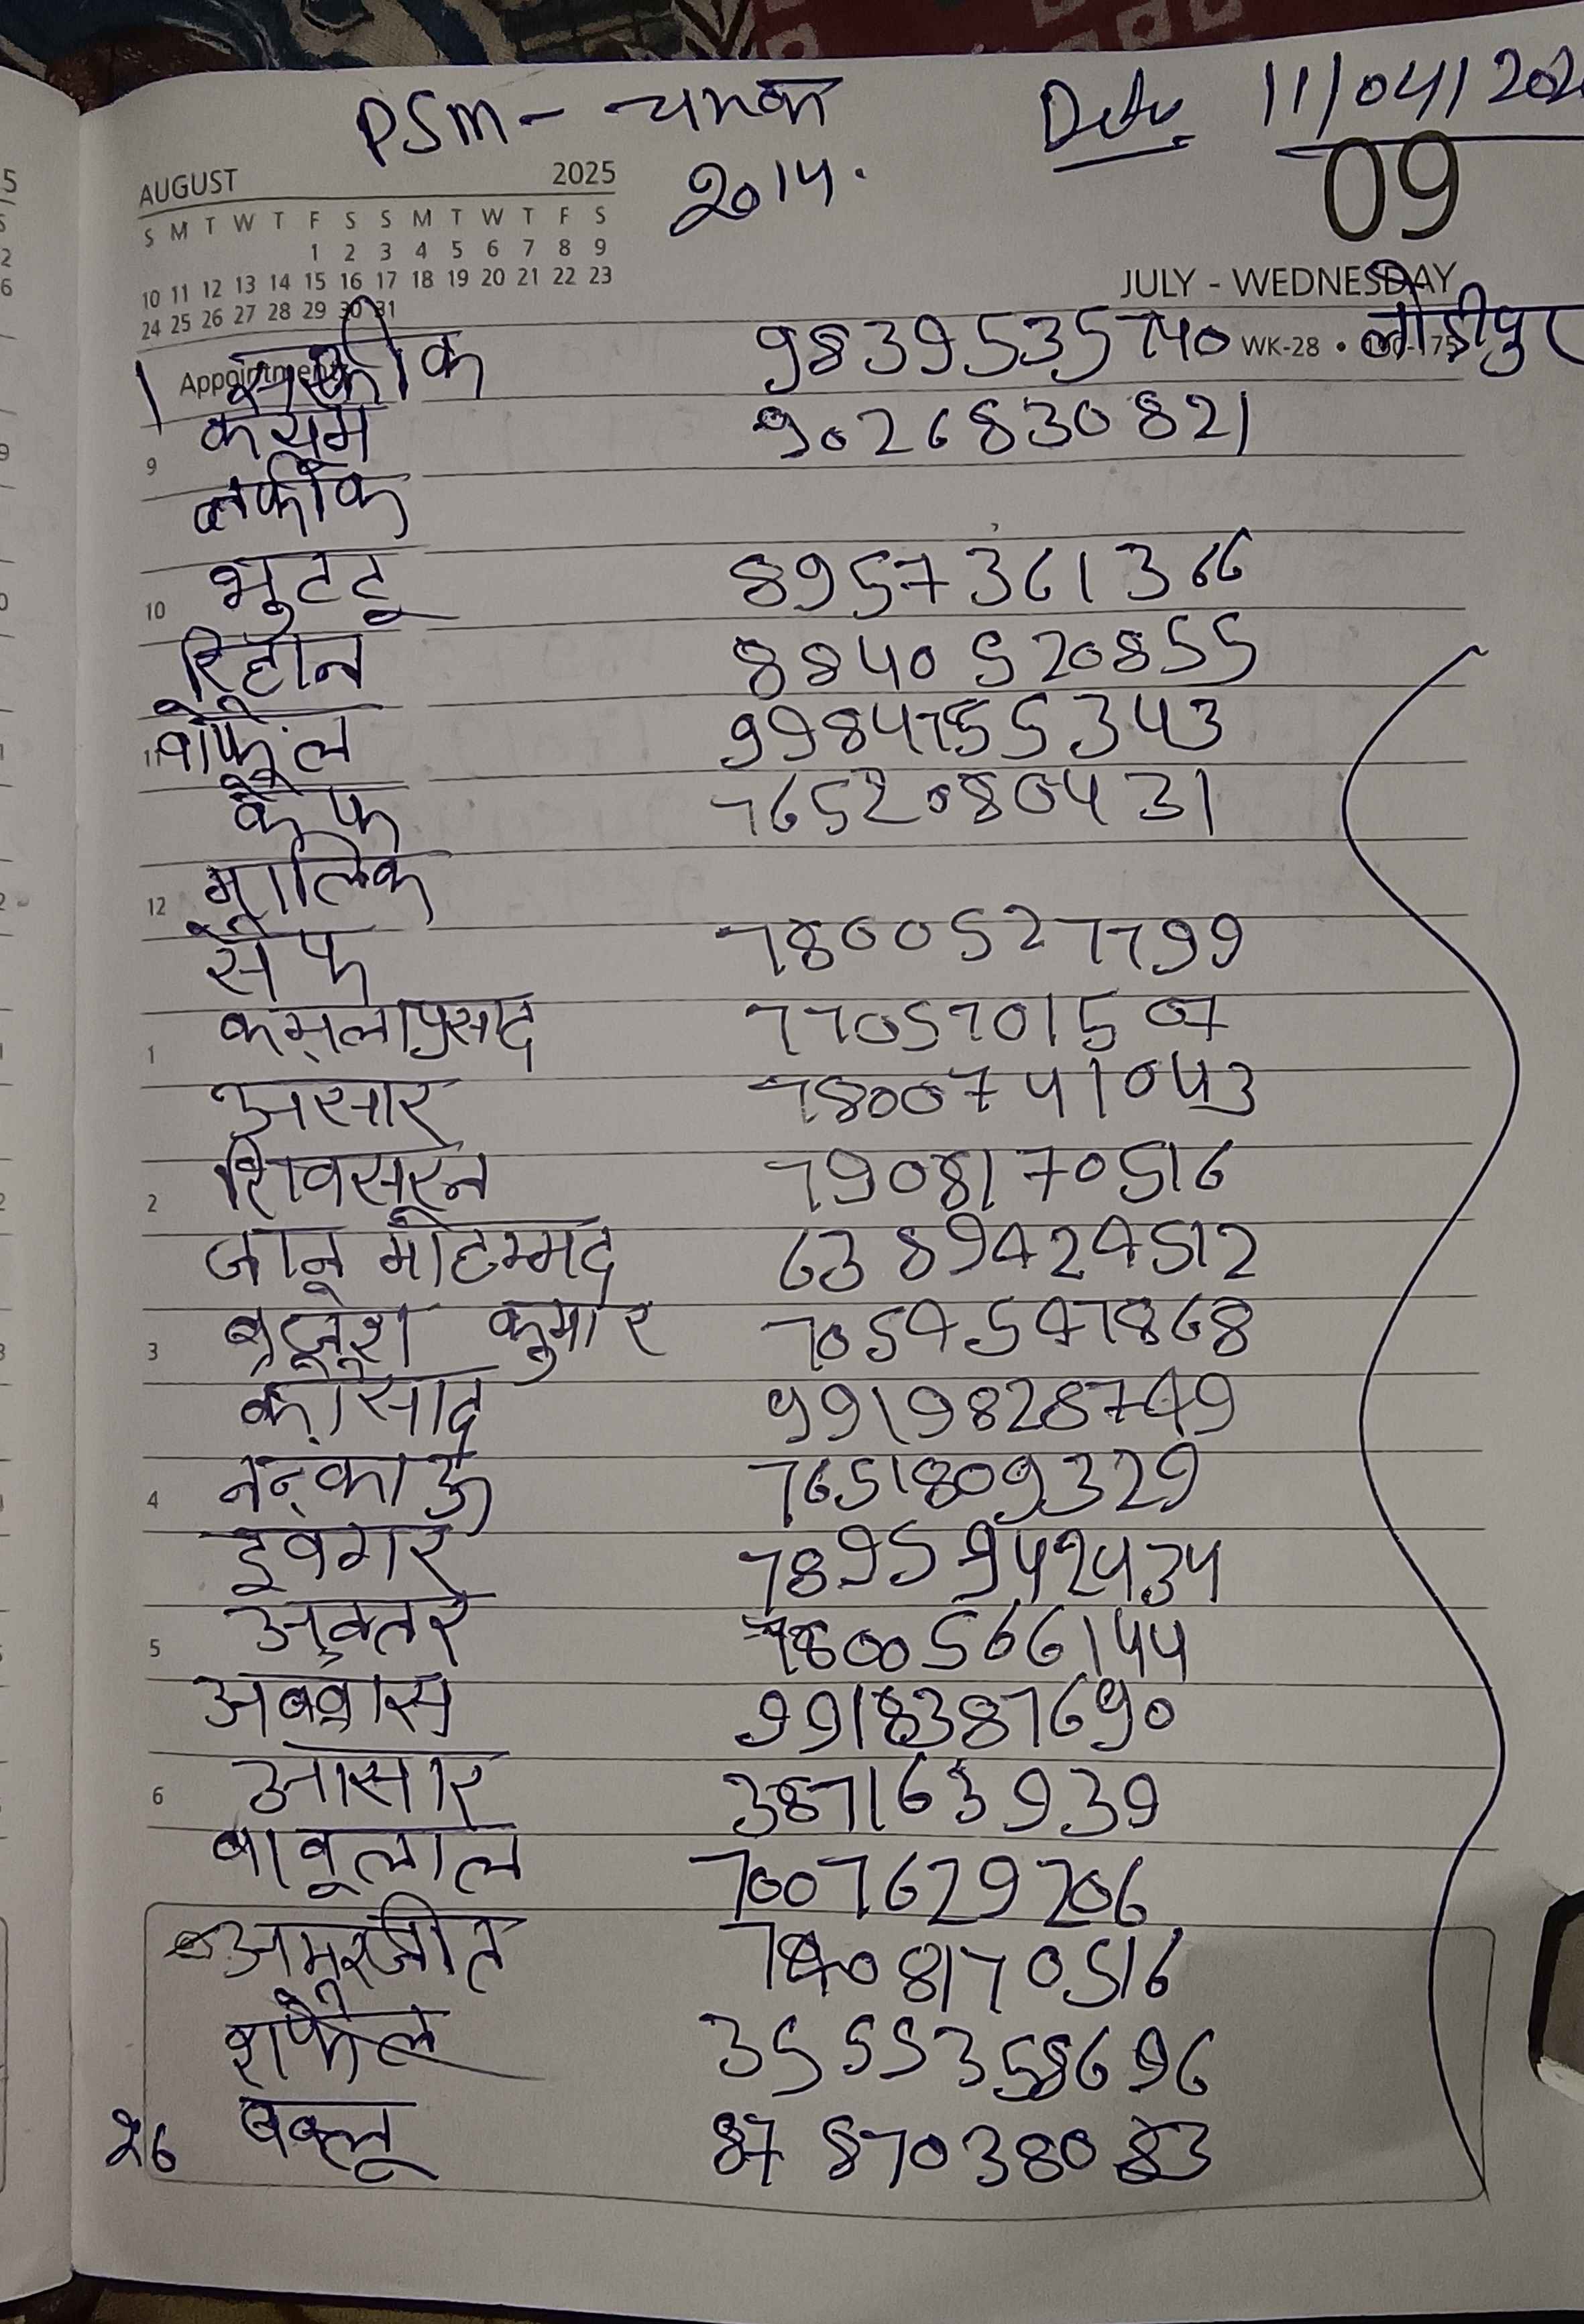 PSM - चमक
2014.
Date 11/04/202
AUGUST 2025
S M T W T F S S M T W T F S
1 2 3 4 5 6 7 8 9
10 11 12 13 14 15 16 17 18 19 20 21 22 23
24 25 26 27 28 29 30 31
09
JULY - WEDNESDAY
WK-28 •
Appointment
1 9839535740 लोडीपुर
कयूम 9026830821
9
लफीक
भुटटू 8957361366
10
रिहान 8840520855
9984755343
कैफ 7652080431
मालिक
12
सैफ 7800527799
कमलाप्रसाद 7705701507
1
असार 7800741043
शिवसरन 7908170516
2
जान मोहम्मद 6389424512
ब्रजेश कुमार 7054547868
3
कौसाद 9919828749
नन्काऊ 7651809329
4
इवगार 7895942434
अख्तर 7800566144
5
अब्बास 9918387690
आसार 387163939
6
बाबूलाल 7007629206
अमरजीत 7408170516
शफैल 3555358696
26 बब्लू 8787038083